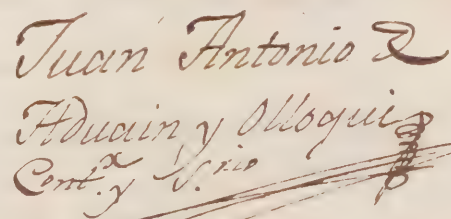 Juan Antonio de
Aduain y Olloqui
Cont.r y S.rio